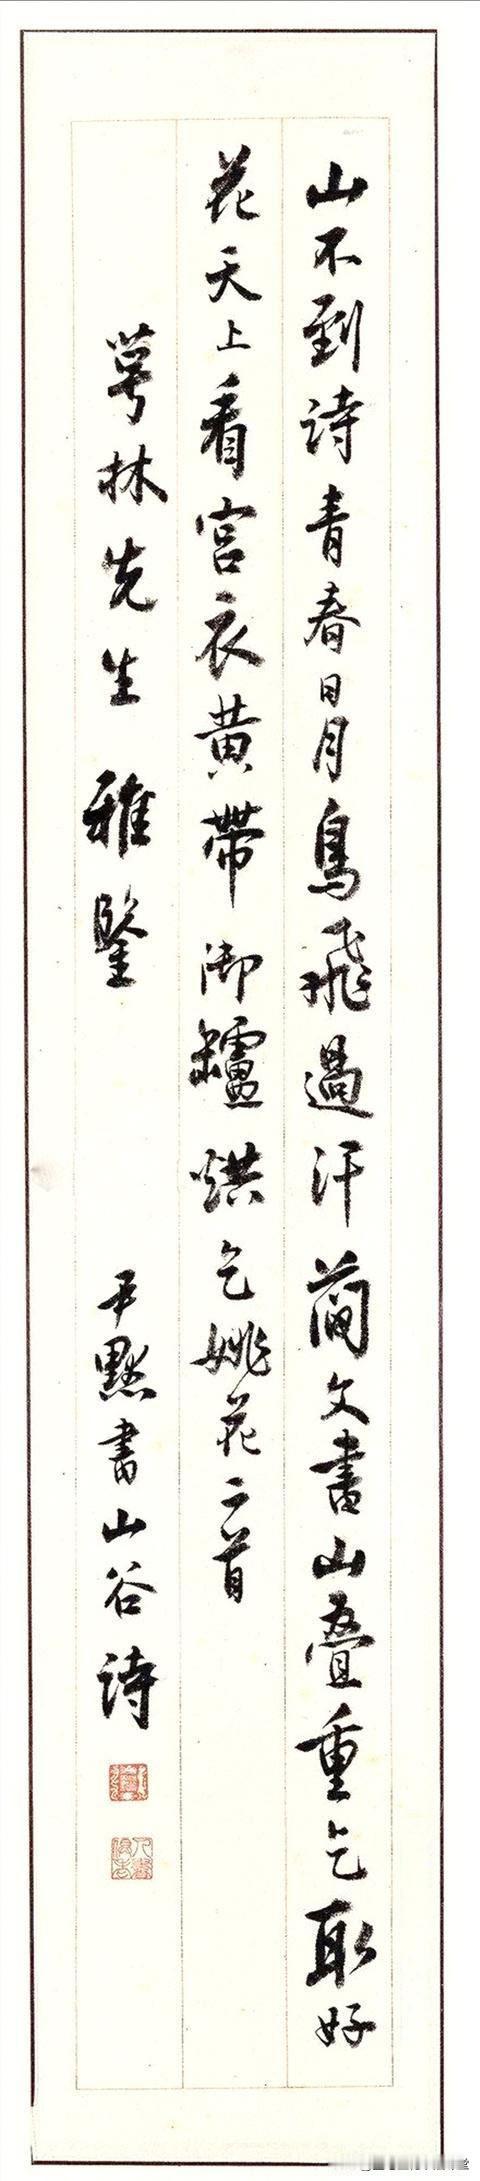 山不到詩青春日月鳥飛過汗蕳文書山疊重乞取好
花天上看宮衣黄帶御鑪烘乞姚花二首
萼林先生雅鑒
尹默書山谷詩